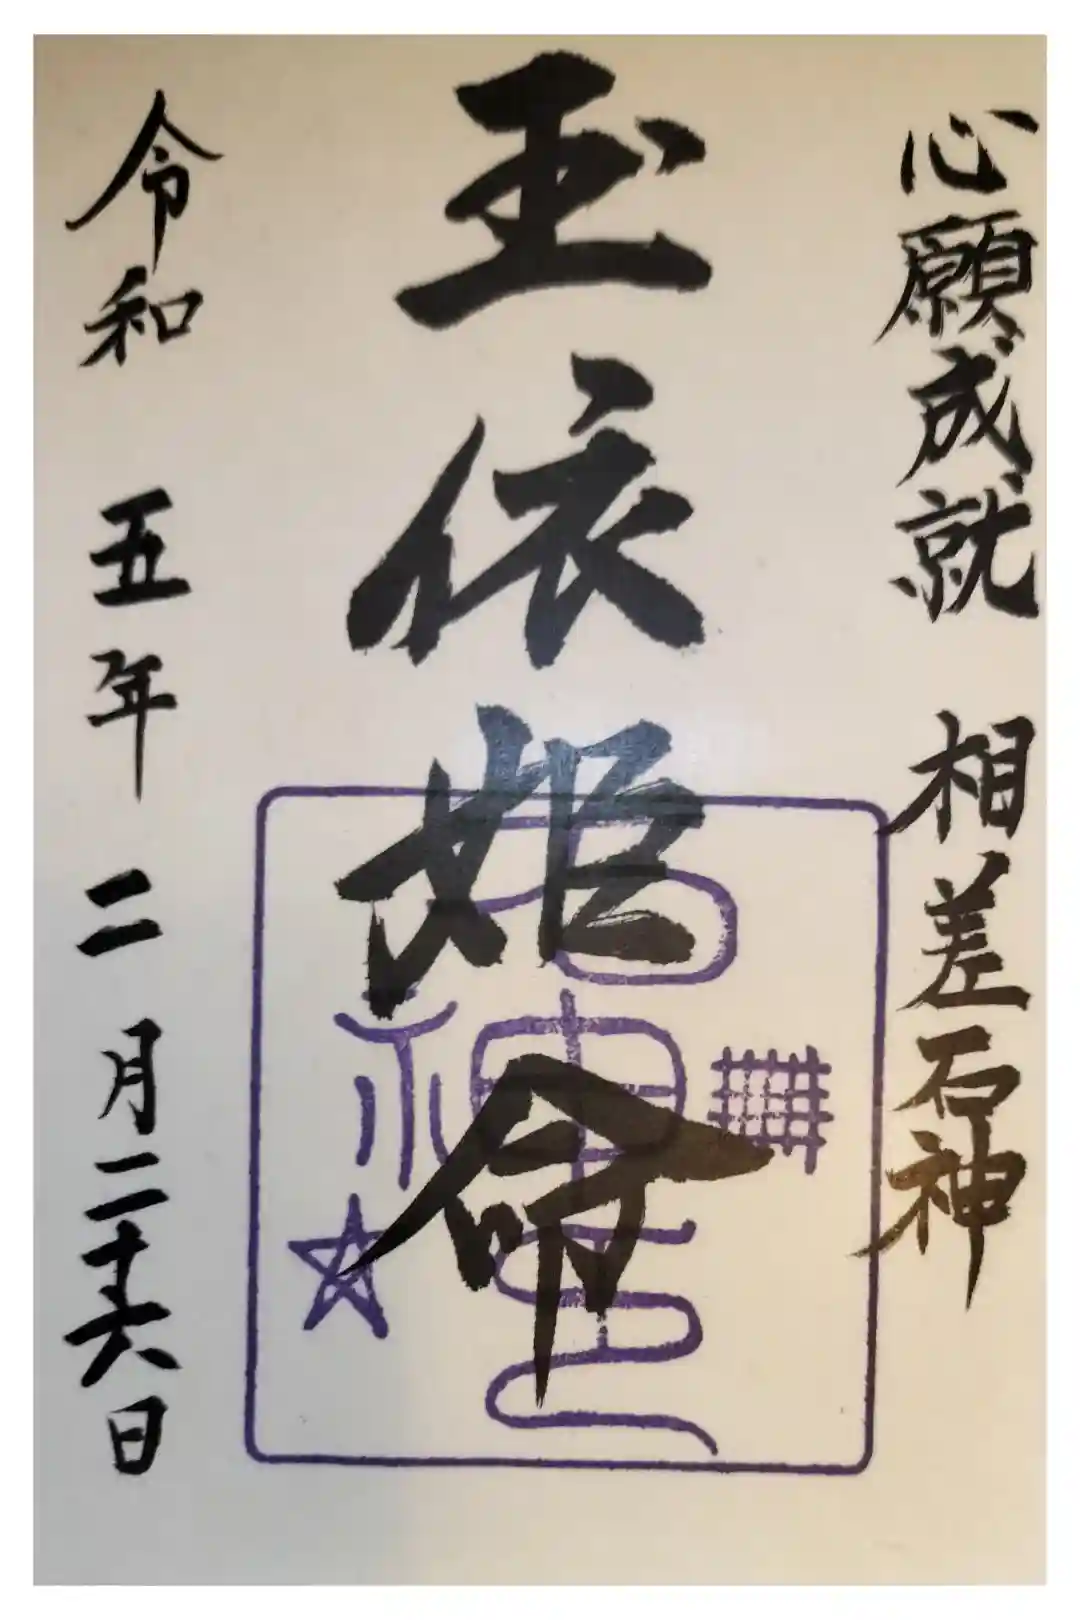 心願成就 相差石神
玉依姫命
令和 五年 二月二十六日
石神